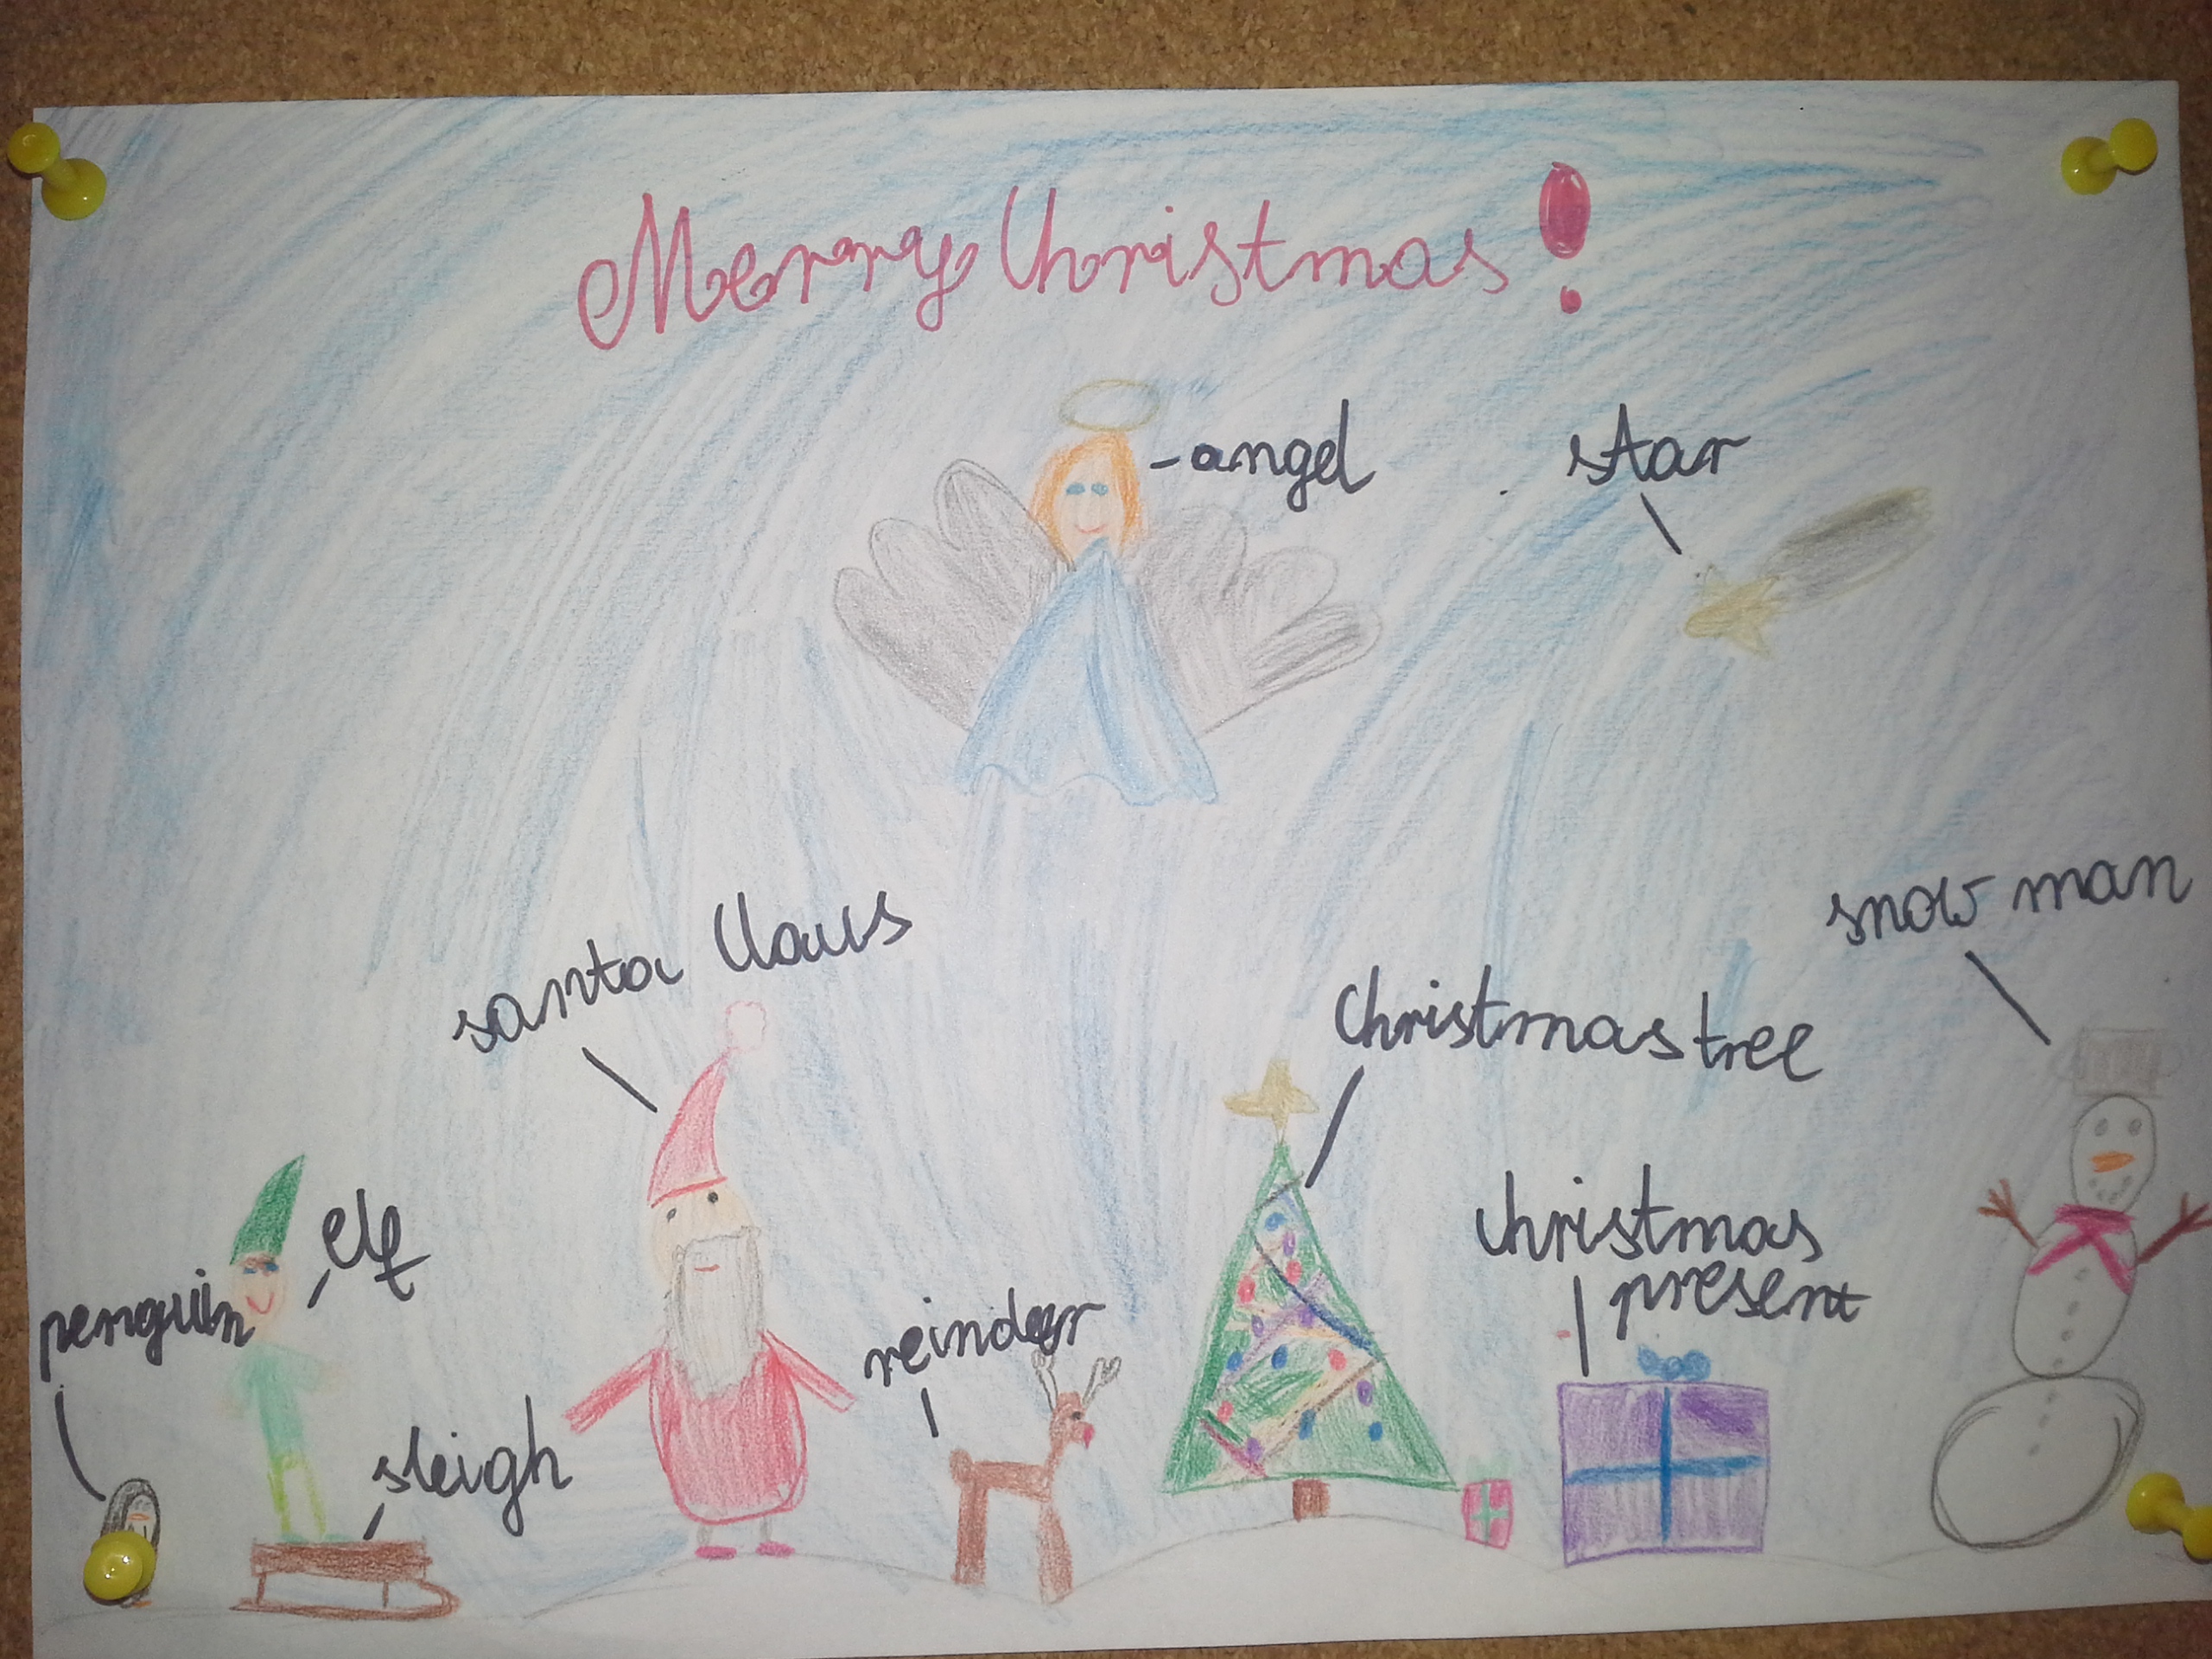 Merry Christmas!
-angel
star
snow man
santa Claus
Christmas tree
christmas
present
elf
penguin
reindeer
sleigh